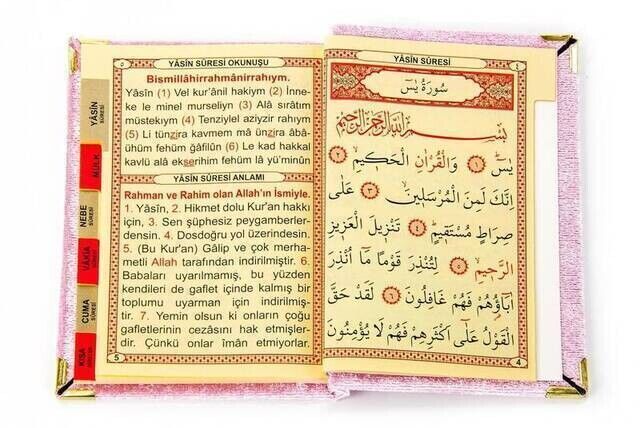 YÂSİN SÛRESİ
سُورَةُ يٰسٓ
بِسْمِ اللّٰهِ الرَّحْمٰنِ الرَّحِيمِ
يٰسٓ ١ وَالْقُرْاٰنِ الْحَكِيمِ ٢
اِنَّكَ لَمِنَ الْمُرْسَلِينَ ٣ عَلٰى
صِرَاطٍ مُسْتَقِيمٍ ٤ تَنْزِيلَ الْعَزِيزِ
الرَّحِيمِ ٥ لِتُنْذِرَ قَوْمًا مَٓا اُنْذِرَ
اٰبَٓاؤُ۬هُمْ فَهُمْ غَافِلُونَ ٦ لَقَدْ حَقَّ
الْقَوْلُ عَلٰٓى اَكْثَرِهِمْ فَهُمْ لَا يُؤْمِنُونَ
4
YÂSİN SÛRESİ OKUNUŞU
Bismillâhirrahmânirrahıym.
Yâsîn (1) Vel kur'ânil hakiym (2) İnne-
ke le minel murseliyn (3) Alâ sırâtım
müstekıym (4) Tenziylel aziyzir rahıym
(5) Li tünzira kavmem mâ ünzira âbâ-
ühüm fehüm ğâfilûn (6) Le kad hakkal
kavlü alâ ekserihim fehüm lâ yü'minûn
YÂSİN SÛRESİ ANLAMI
Rahman ve Rahim olan Allah'ın İsmiyle.
1. Yâsîn, 2. Hikmet dolu Kur'an hakkı
için, 3. Sen şüphesiz peygamberler-
densin. 4. Dosdoğru yol üzerindesin.
5. (Bu Kur'an) Gâlip ve çok merha-
metli Allah tarafından indirilmiştir. 6.
Babaları uyarılmamış, bu yüzden
kendileri de gaflet içinde kalmış bir
toplumu uyarman için indirilmiş-
tir. 7. Yemin olsun ki onların çoğu
gafletlerinin cezâsını hak etmişler-
dir. Çünkü onlar îmân etmiyorlar.
5
YÂSİN
SÛRESİ
MÜLK
NEBE
SÛRESİ
VÂKIA
SÛRESİ
CUMA
SÛRESİ
KISA